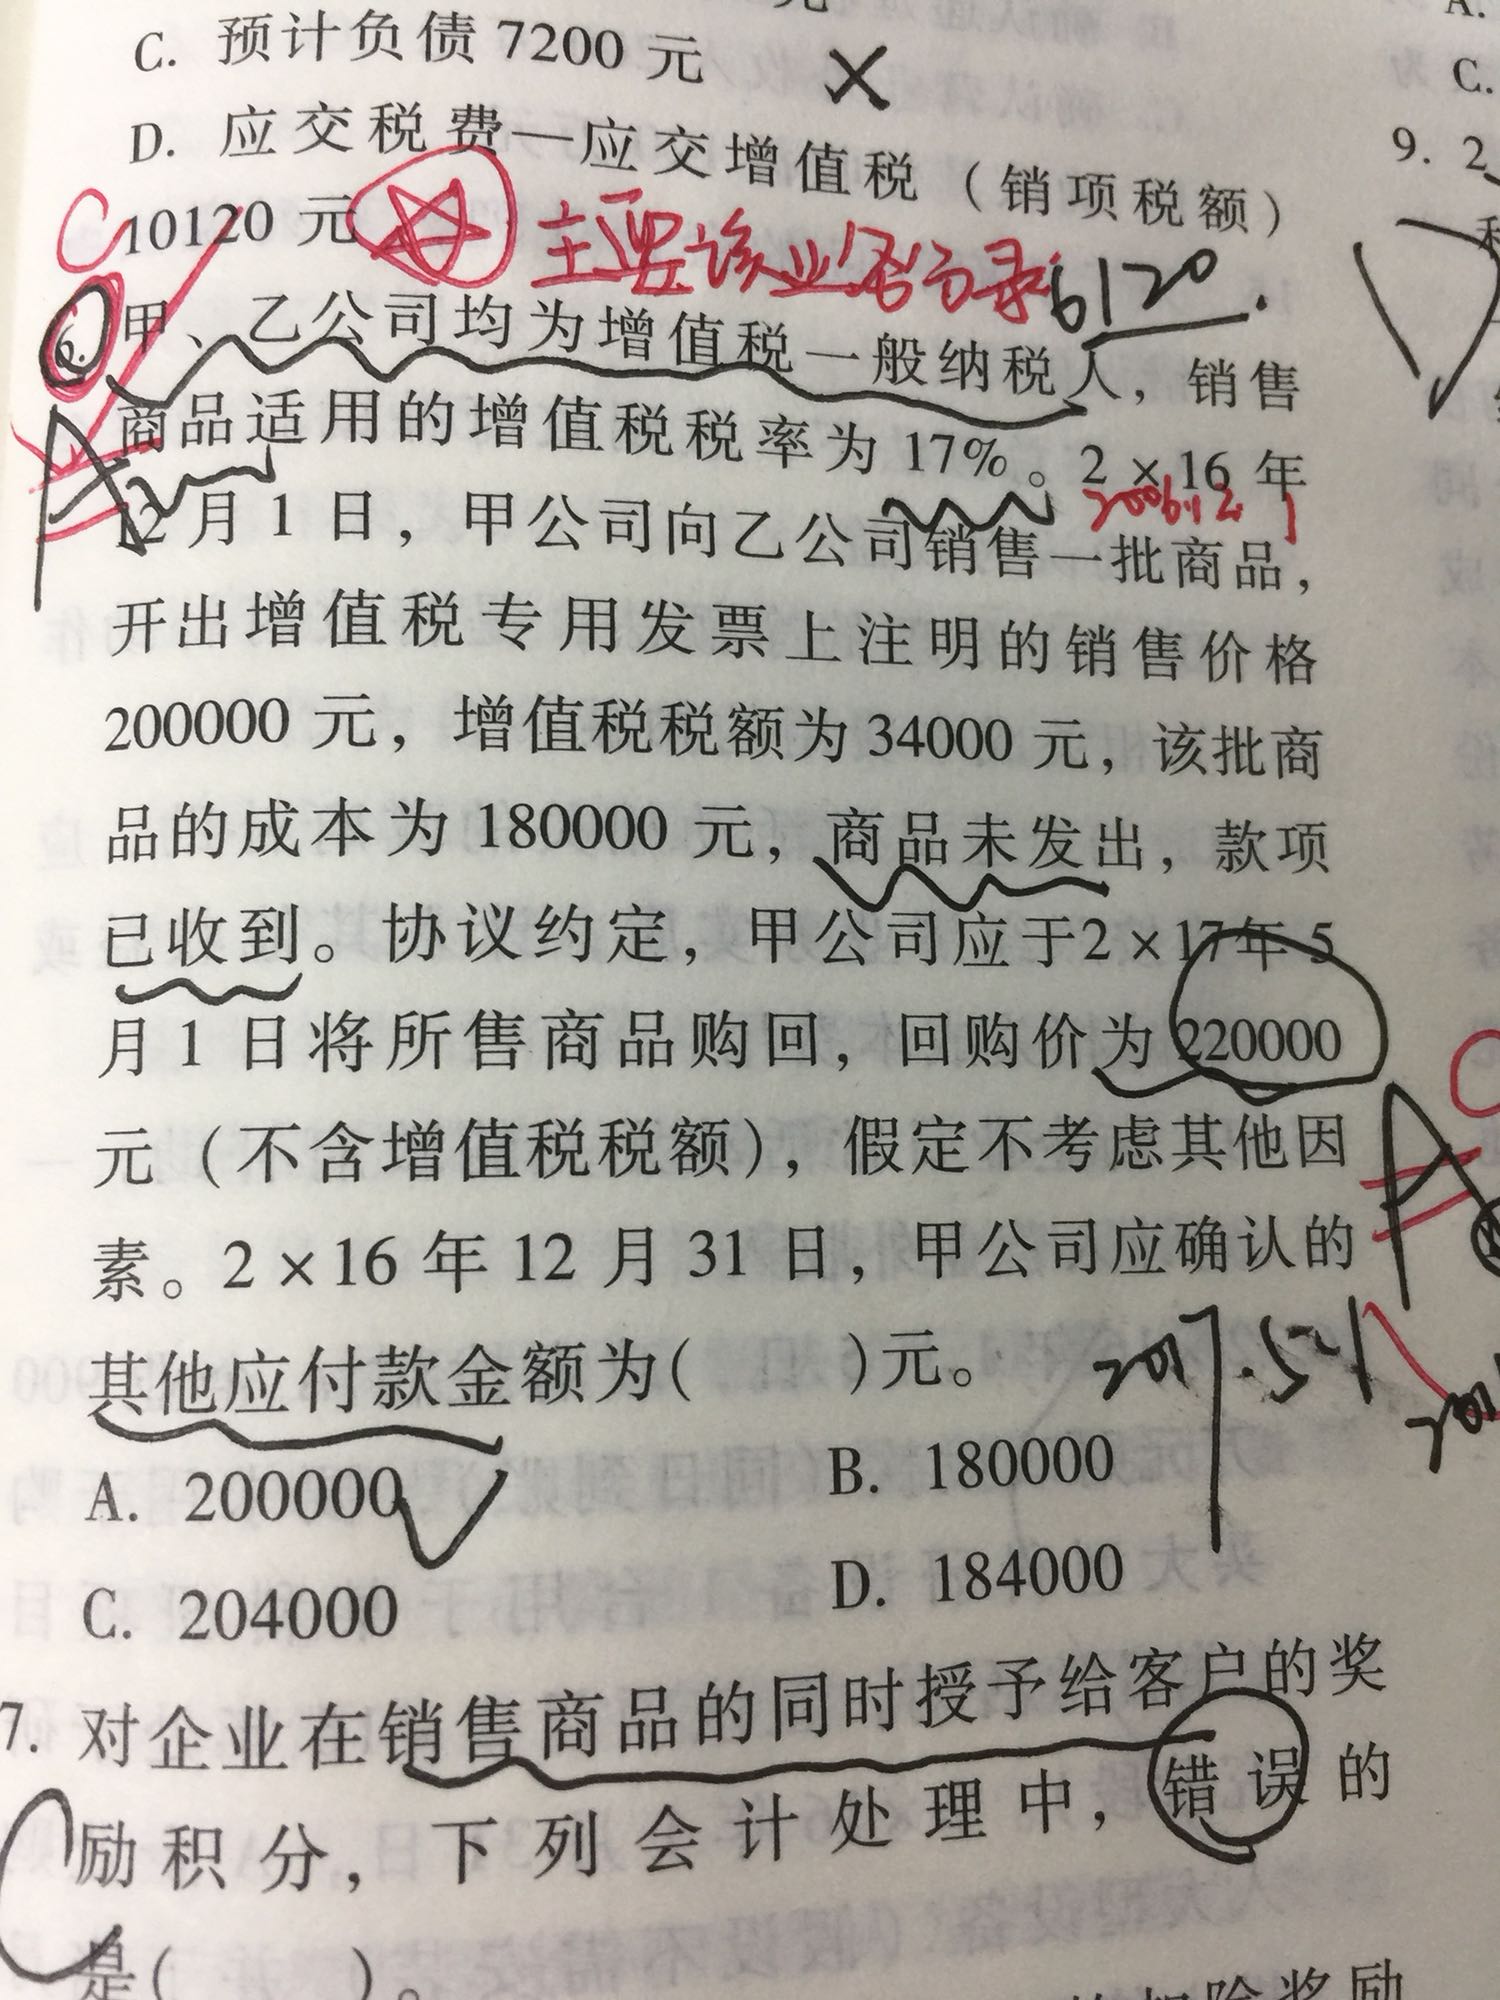 C. 预计负债 7200 元
D. 应交税费—应交增值税（销项税额）
10120 元
主要该业务分录
6120.
C
6. 甲、乙公司均为增值税一般纳税人，销售
商品适用的增值税税率为 17%。2×16 年
A
12 月 1 日，甲公司向乙公司销售一批商品，
开出增值税专用发票上注明的销售价格
200000 元，增值税税额为 34000 元，该批商
品的成本为 180000 元，商品未发出，款项
已收到。协议约定，甲公司应于2×17年 5
月 1 日将所售商品购回，回购价为 220000
元（不含增值税税额），假定不考虑其他因
素。2×16 年 12 月 31 日，甲公司应确认的
其他应付款金额为(　　)元。
2017.5
A. 200000
B. 180000
C. 204000
D. 184000
7. 对企业在销售商品的同时授予给客户的奖
励积分，下列会计处理中，错误的
是(　　)。
C
A
A.
C.
9. 2